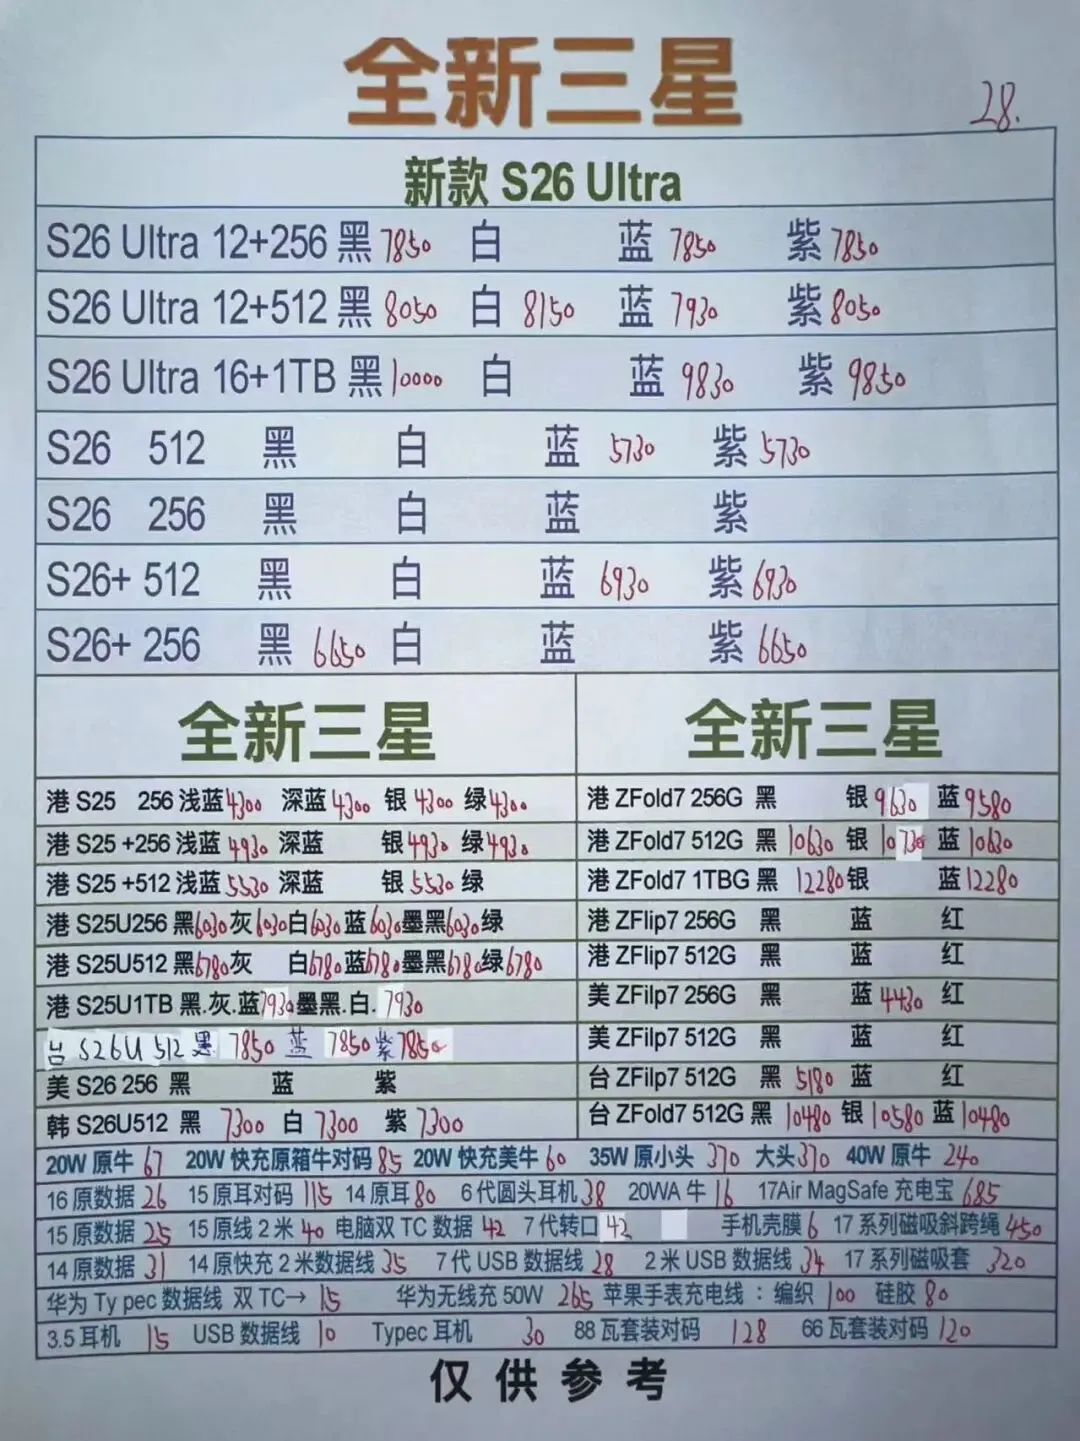 全新三星
28.
新款 S26 Ultra
S26 Ultra 12+256 黑 7850 白 蓝 7850 紫 7850
S26 Ultra 12+512 黑 8050 白 8150 蓝 7930 紫 8050
S26 Ultra 16+1TB 黑 10000 白 蓝 9830 紫 9850
S26 512 黑 白 蓝 5730 紫 5730
S26 256 黑 白 蓝 紫
S26+ 512 黑 白 蓝 6930 紫 6930
S26+ 256 黑 6650 白 蓝 紫 6650
全新三星
港 S25 256 浅蓝 4300 深蓝 4300 银 4300 绿 4300
港 S25 +256 浅蓝 4930 深蓝 银 4930 绿 4930
港 S25 +512 浅蓝 5530 深蓝 银 5530 绿
港 S25U256 黑 6030 灰 6030 白 6030 蓝 6030 墨黑 6030 绿
港 S25U512 黑 6780 灰 白 6780 蓝 6780 墨黑 6780 绿 6780
港 S25U1TB 黑.灰.蓝 7930 墨黑.白. 7930
台 S26U 512 黑 7850 蓝 7850 紫 7850
美 S26 256 黑 蓝 紫
韩 S26U512 黑 7300 白 7300 紫 7300
全新三星
港 ZFold7 256G 黑 银 9630 蓝 9580
港 ZFold7 512G 黑 10630 银 10730 蓝 10630
港 ZFold7 1TBG 黑 12280 银 蓝 12280
港 ZFlip7 256G 黑 蓝 红
港 ZFlip7 512G 黑 蓝 红
美 ZFilp7 256G 黑 蓝 4430 红
美 ZFilp7 512G 黑 蓝 红
台 ZFilp7 512G 黑 5180 蓝 红
台 ZFold7 512G 黑 10480 银 10580 蓝 10480
20W 原牛 67 20W 快充原箱牛对码 85 20W 快充美牛 60 35W 原小头 370 大头 370 40W 原牛 240
16 原数据 26 15 原耳对码 115 14 原耳 80 6 代圆头耳机 38 20WA 牛 16 17Air MagSafe 充电宝 685
15 原数据 25 15 原线 2 米 40 电脑双 TC 数据 42 7 代转口 42 手机壳膜 6 17 系列磁吸斜跨绳 450
14 原数据 31 14 原快充 2 米数据线 35 7 代 USB 数据线 28 2 米 USB 数据线 34 17 系列磁吸套 320
华为 Ty pec 数据线 双 TC→ 15 华为无线充 50W 265 苹果手表充电线：编织 100 硅胶 80
3.5 耳机 15 USB 数据线 10 Typec 耳机 30 88 瓦套装对码 128 66 瓦套装对码 120
仅供参考